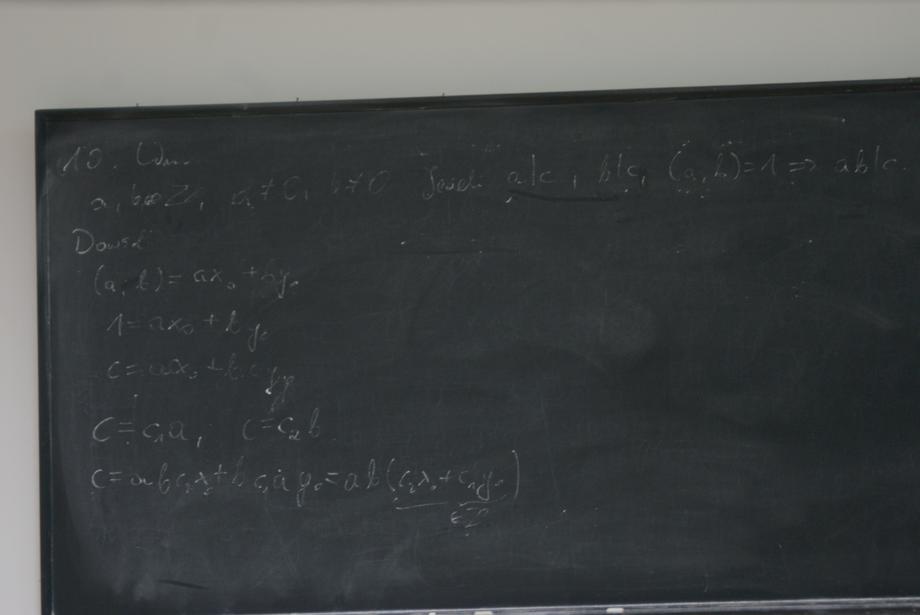 10. Wn.
a, b ∈ Z, a ≠ 0, b ≠ 0 Jeżeli a|c, b|c, (a, b) = 1 ⇒ ab|c.
Dowód
(a, b) = ax₀ + by₀
1 = ax₀ + by₀
c = acx₀ + bcy₀
c = c₁a, c = c₂b
c = abc₂x₀ + bc₁ay₀ = ab(c₂x₀ + c₁y₀)
∈ Z